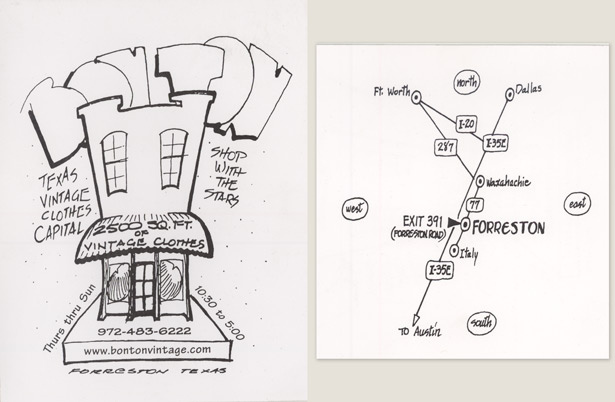 TEXAS
VINTAGE
CLOTHES
CAPITAL
SHOP
WITH
THE
STARS
2500 SQ. FT.
OF
VINTAGE CLOTHES
Thurs thru Sun
10:30 to 5:00
972-483-6222
www.bontonvintage.com
FORRESTON TEXAS
north
Ft. Worth
Dallas
I-20
287
I-35E
Waxahachie
77
west
east
EXIT 391
(FORRESTON ROAD)
FORRESTON
Italy
I-35E
TO Austin
south